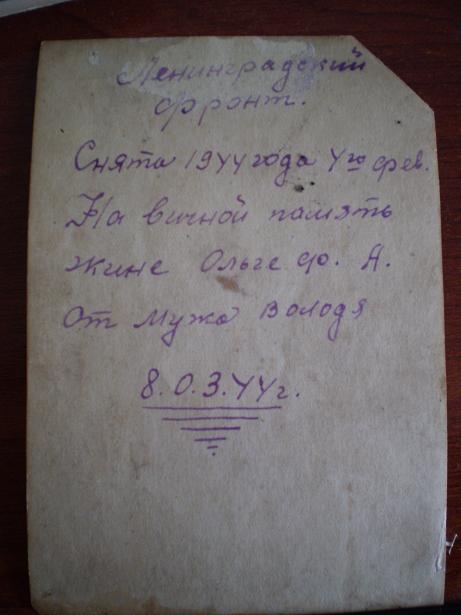 Ленинградский
фронт.
Снята 1944 года 4го фев.
На вичной память
жине Ольге ф. А.
От мужа Володя
8.03.44г.